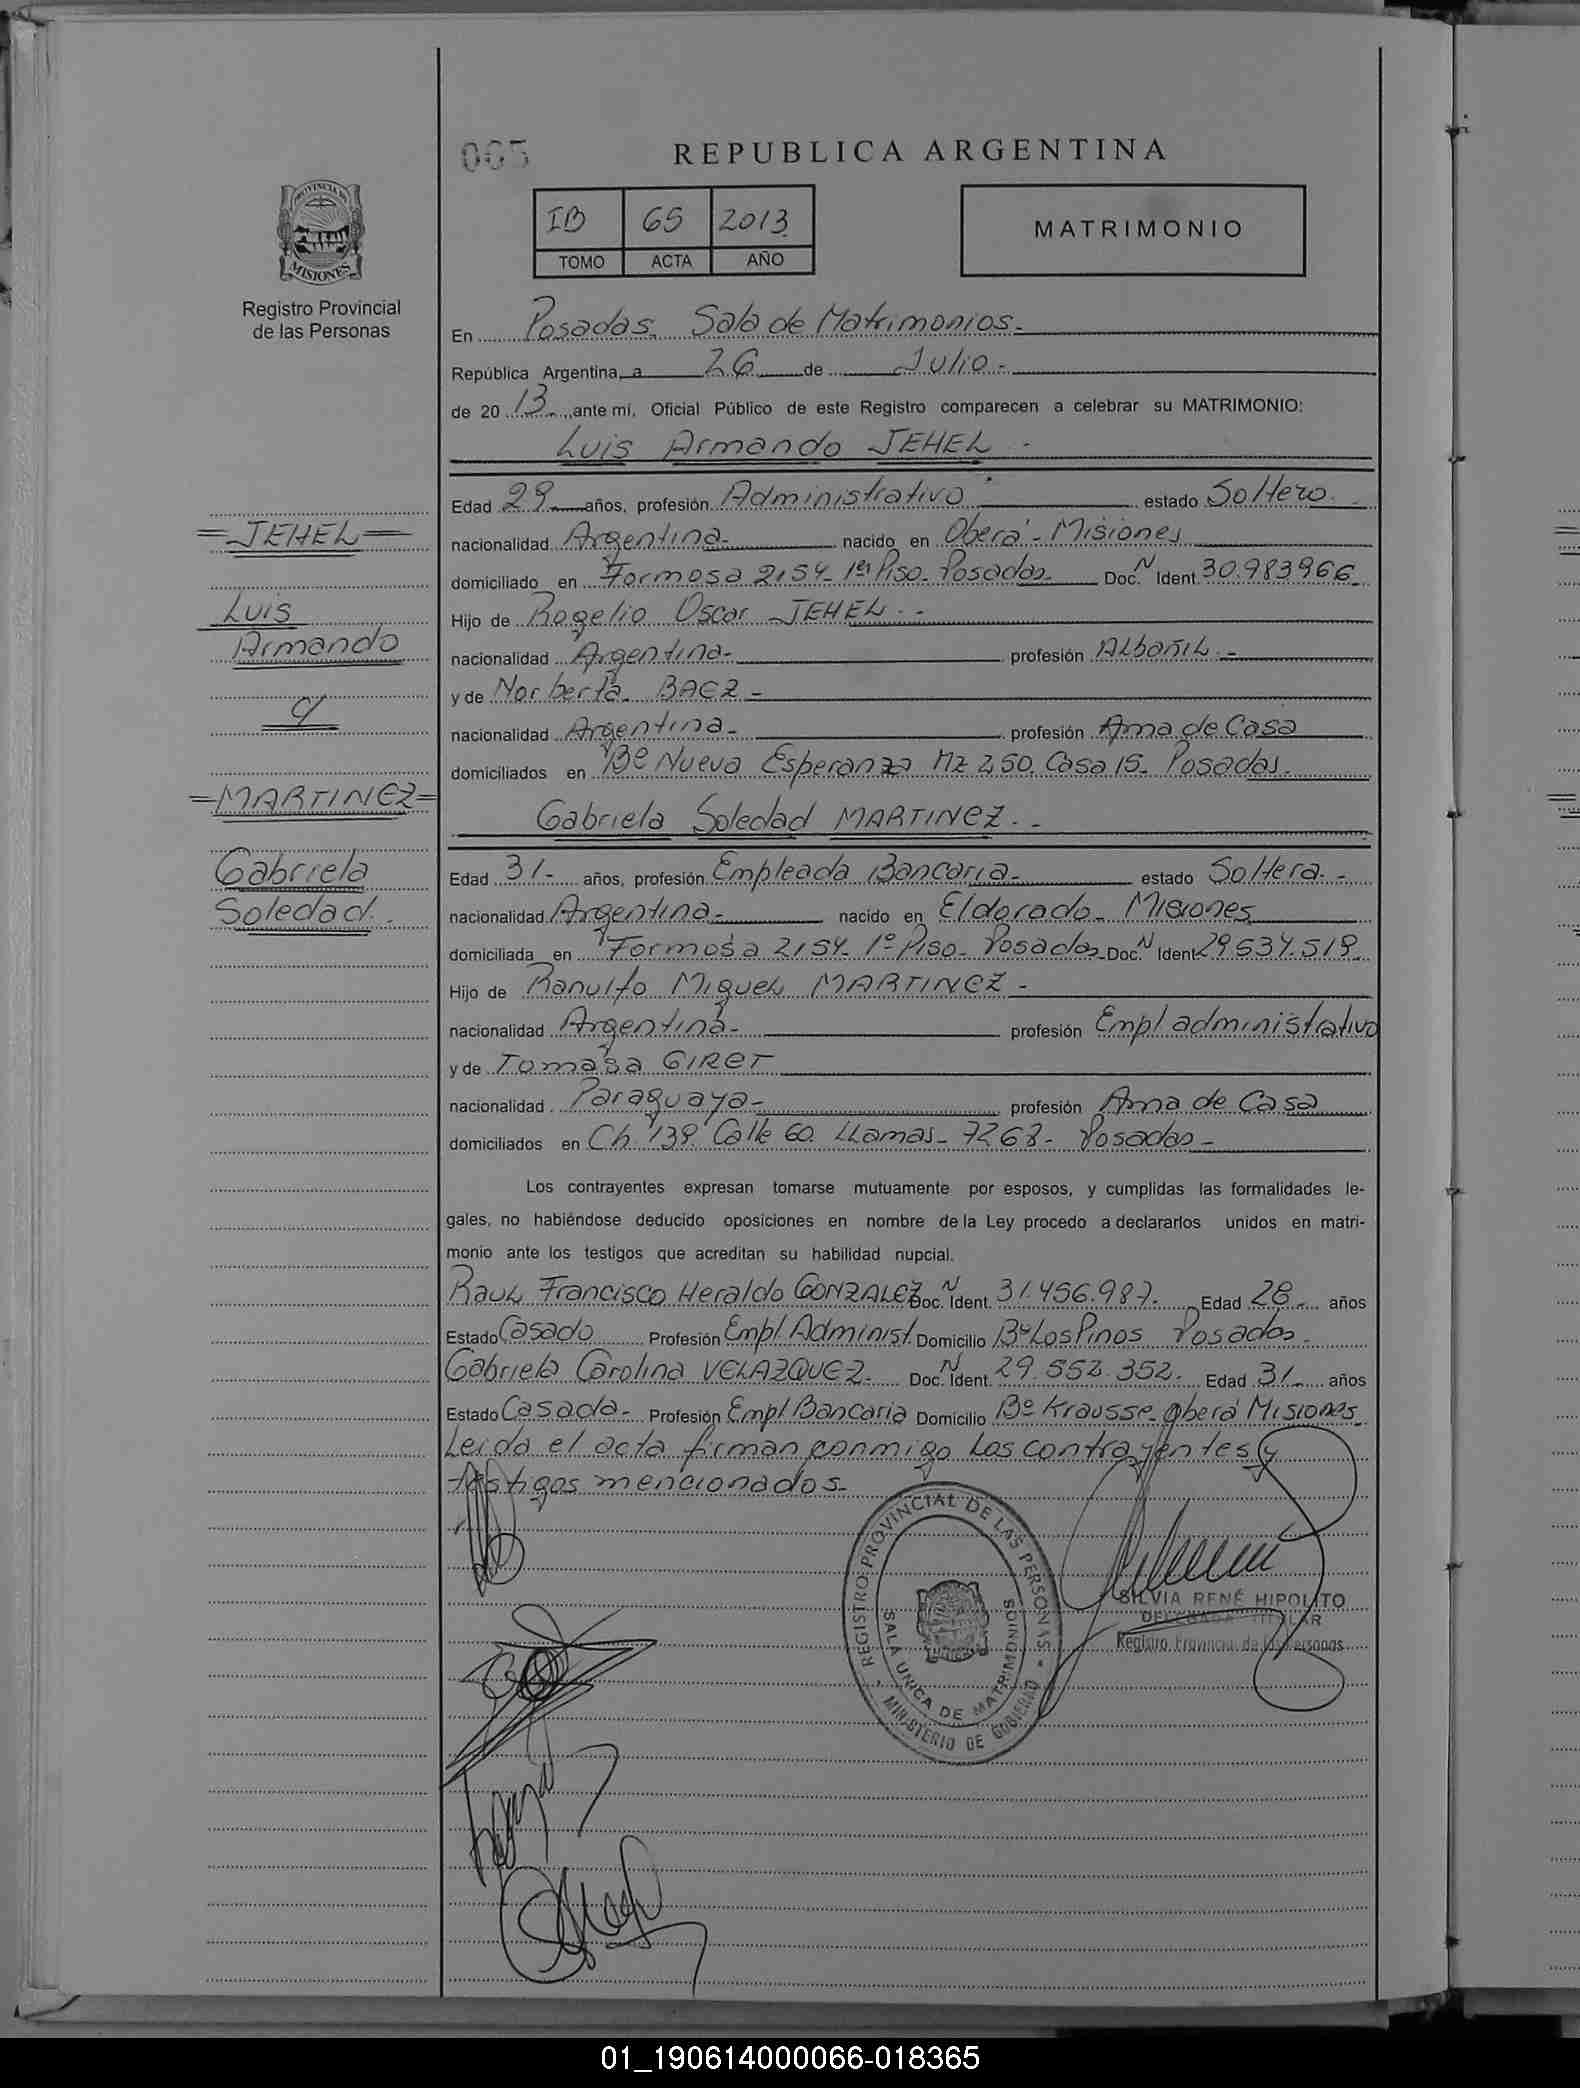 065
REPUBLICA ARGENTINA
PROVINCIA DE
MISIONES
Registro Provincial
de las Personas
IB 65 2013
TOMO ACTA AÑO
MATRIMONIO
En Posadas. Sala de Matrimonios.-
República Argentina, a 26 de Julio.-
de 20 13.- ante mí, Oficial Público de este Registro comparecen a celebrar su MATRIMONIO:
Luis Armando JEHEL.-
Edad 29 años, profesión Administrativo estado Soltero.
=JEHEL=
nacionalidad Argentina- nacido en Oberá- Misiones
domiciliado en Formosa 2154- 1er Piso- Posadas Doc. N Ident. 30.983966-
Luis
Hijo de Rogelio Oscar JEHEL.-
Armando
nacionalidad Argentina- profesión ALbañiL.-
y de Norberta BAEZ-
y
nacionalidad Argentina- profesión Ama de Casa
domiciliados en Bº Nueva Esperanza Mz 250. Casa 15- Posadas.
=MARTINEZ=
Gabriela Soledad MARTINEZ.-
Gabriela
Edad 31- años, profesión Empleada Bancaria- estado Soltera.-
Soledad.
nacionalidad Argentina- nacido en Eldorado- Misiones
domiciliada en Formosa 2154- 1º Piso- Posadas- Doc. N Ident 29537.519-
Hijo de Ranulfo MigueL MARTINEZ-
nacionalidad Argentina- profesión Empl administrativo
y de Tomasa GIRET
nacionalidad Paraguaya- profesión Ama de Casa
domiciliados en Ch. 139. Calle 60. LLamas- 7268- Posadas-
Los contrayentes expresan tomarse mutuamente por esposos, y cumplidas las formalidades le-
gales, no habiéndose deducido oposiciones en nombre de la Ley procedo a declararlos unidos en matri-
monio ante los testigos que acreditan su habilidad nupcial.
RauL Francisco Heraldo GONZALEZ Doc. N Ident. 31.456.987. Edad 28- años
Estado Casado Profesión Empl Administ. Domicilio Bº Los Pinos Posadas.
Gabriela Carolina VELAZQUEZ. Doc. N Ident. 29.552.352. Edad 31- años
Estado Casada- Profesión Empl Bancaria Domicilio Bº Krausse- Oberá Misiones
Leida el acta firman conmigo Los contrayentes y
testigos mencionados-
REGISTRO PROVINCIAL DE LAS PERSONAS
SALA UNICA DE MATRIMONIOS
MINISTERIO DE GOBIERNO
SILVIA RENÉ HIPOLITO
DELEGADA TITULAR
Registro Provincial de las Personas
01_190614000066-018365